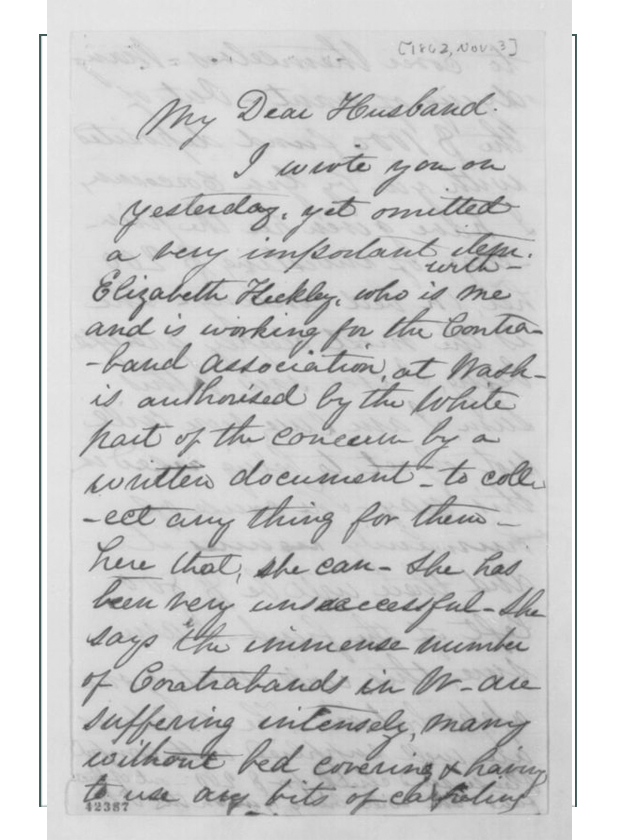 [1862, Nov 3]
My Dear Husband.
I wrote you on
yesterday, yet omitted
a very important item.
with -
Elizabeth Keckley, who is me
and is working for the Contra-
-band association, at Wash-
is authorised by the White
part of the concern by a
written document - to coll-
-ect any thing for them -
here that, she can - She has
been very unsuccessful - She
says the immense number
of Contrabands in W - are
suffering intensely, many
without bed covering & having
to use any bits of carpeting
42387